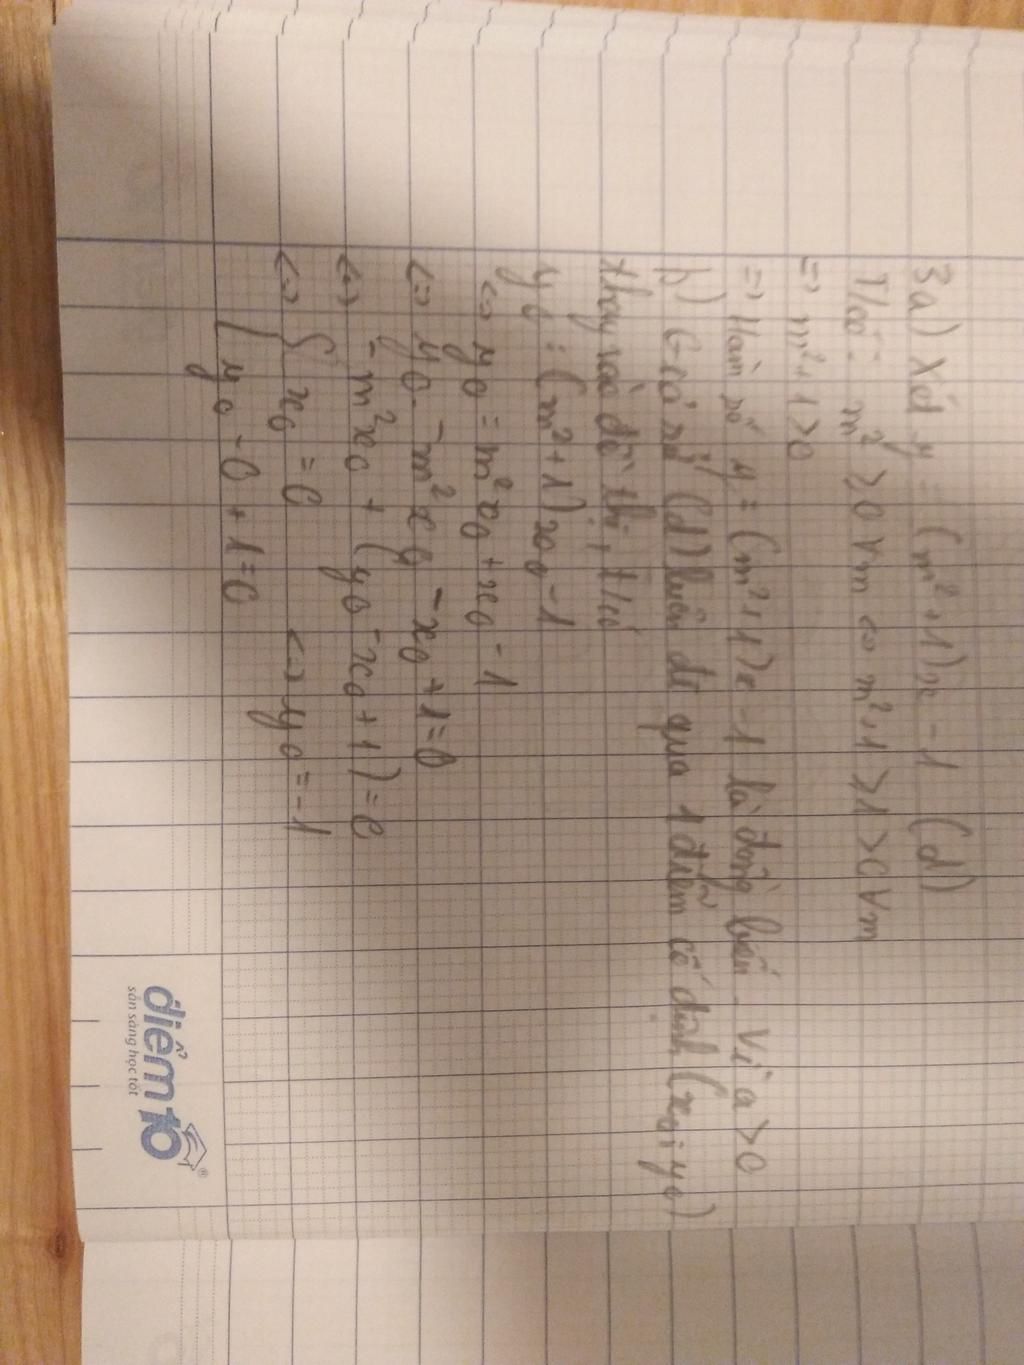 3a) Xét y = (m² + 1)x - 1 (d)
T/có: m² ≥ 0 ∀m ⇔ m² + 1 ≥ 1 > 0 ∀m
⇒ m² + 1 > 0
⇒ Hàm số y = (m² + 1)x - 1 là đồng biến. Vì a > 0
b) Giả sử (d) luôn đi qua 1 điểm cố định (x₀; y₀)
thay vào đồ thị, t/có
y₀ = (m² + 1)x₀ - 1
⇔ y₀ = m²x₀ + x₀ - 1
⇔ y₀ - m²x₀ - x₀ + 1 = 0
⇔ - m²x₀ + (y₀ - x₀ + 1) = 0
⇔ { x₀ = 0
y₀ - 0 + 1 = 0 ⇔ y₀ = -1
điểm10
sẵn sàng học tốt